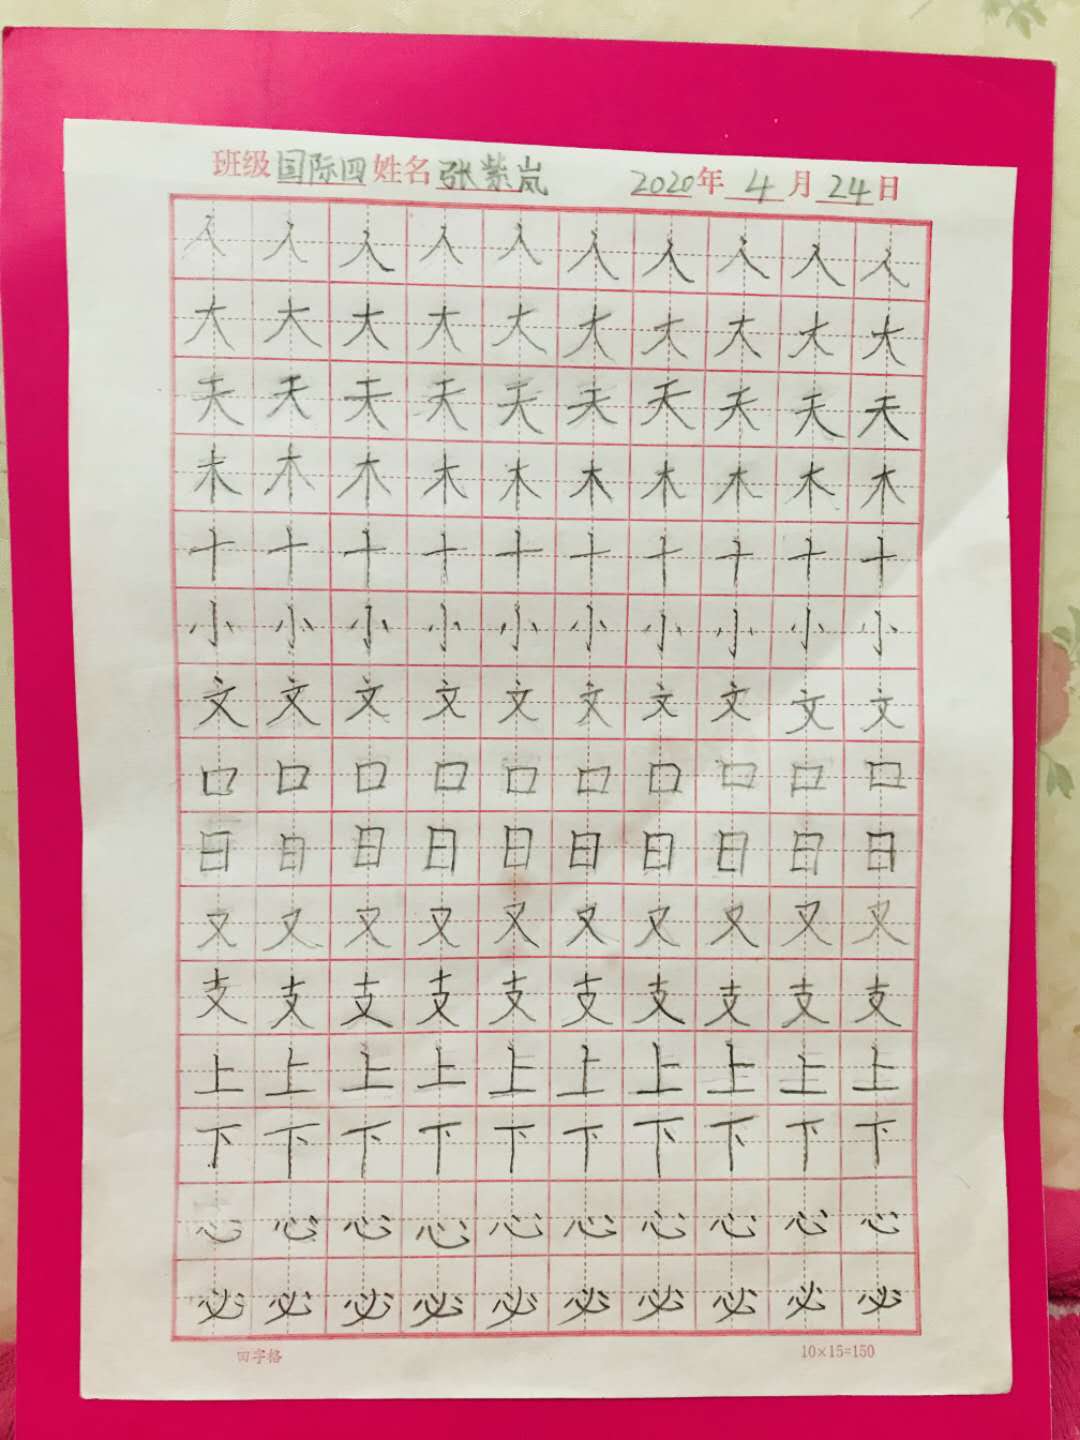 班级国际四姓名张紫岚 2020年4月24日
人人人人人人人人人人
大大大大大大大大大大
天天天天天天天天天天
木木木木木木木木木木
十十十十十十十十十十
小小小小小小小小小小
文文文文文文文文文文
口口口口口口口口口口
日日日日日日日日日日
又又又又又又又又又又
支支支支支支支支支支
上上上上上上上上上上
下下下下下下下下下下
心心心心心心心心心心
必必必必必必必必必必
田字格 10×15=150